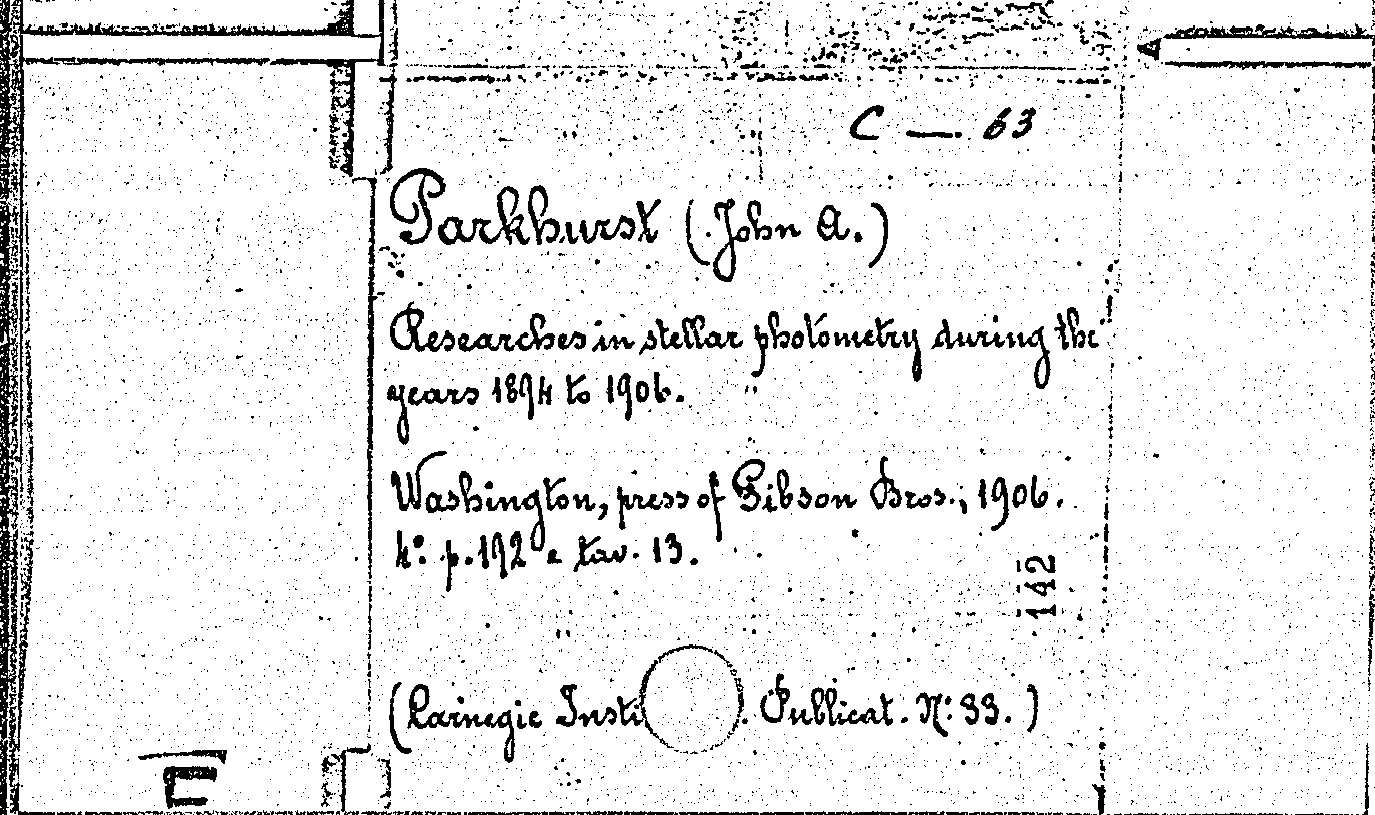 C — 63
Parkhurst (John A.)
Researches in stellar photometry during the
years 1894 to 1906.
Washington, press of Gibson Bros., 1906.
4º p. 192 e tav. 13.
142
(Carnegie Insti . Publicat. Nº 33.)
E